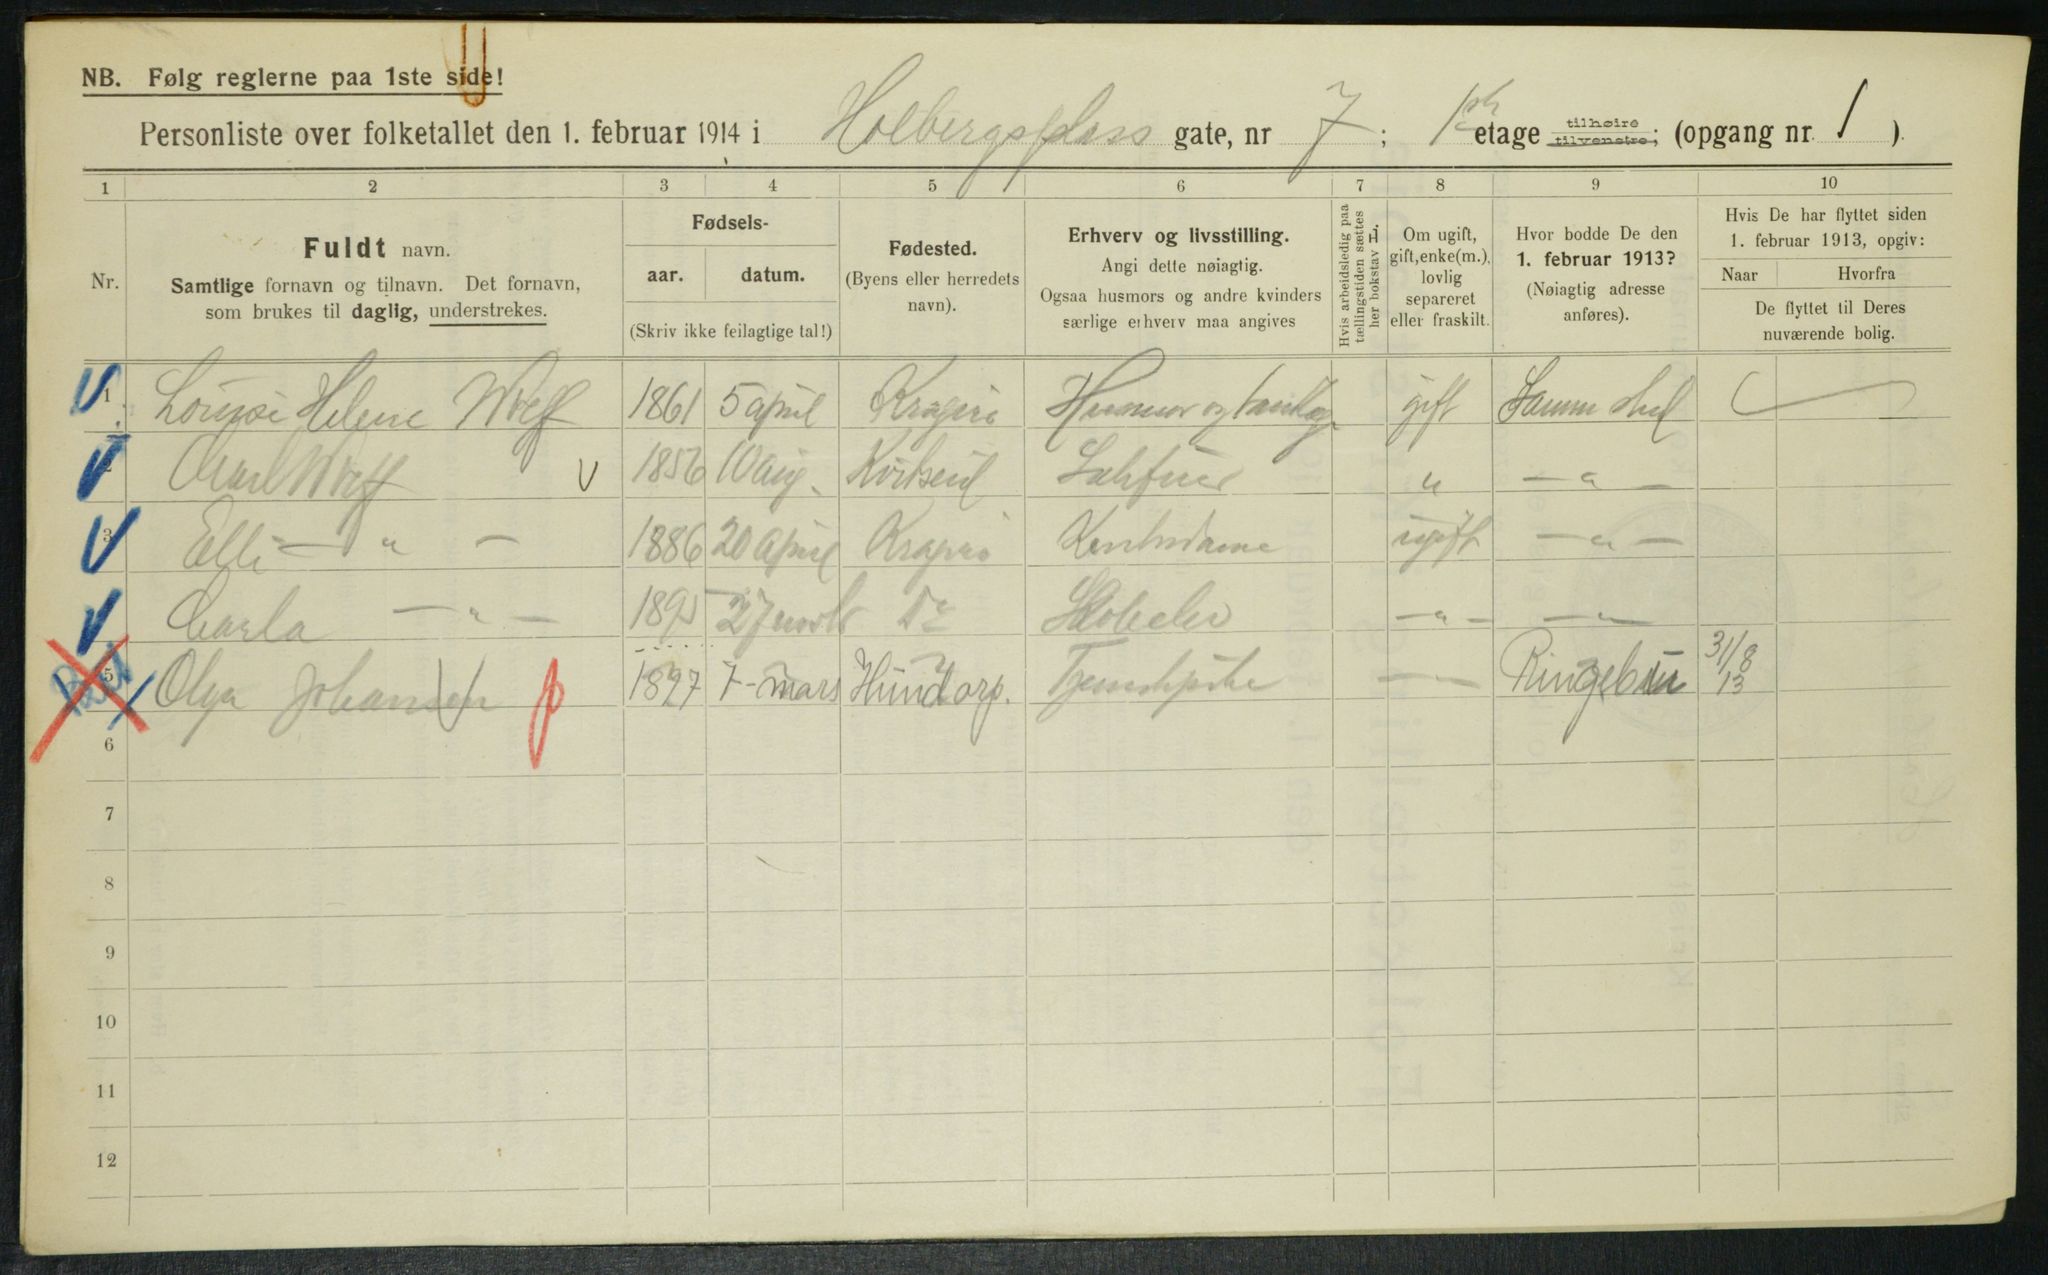 NB. Følg reglerne paa 1ste side!
Personliste over folketallet den 1. februar 1914 i Holbergsplass gate, nr 7 ; 1ste etage tilhøire tilvenstre; (opgang nr. 1 ).
1 2 3 4 5 6 7 8 9 10
Nr.
Fuldt navn.
Samtlige fornavn og tilnavn. Det fornavn,
som brukes til daglig, understrekes.
Fødsels-
aar. datum.
(Skriv ikke feilagtige tal!)
Fødested.
(Byens eller herredets
navn).
Erhverv og livsstilling.
Angi dette nøiagtig.
Ogsaa husmors og andre kvinders
særlige erhverv maa angives
Hvis arbeidsledig paa
tællingstiden sættes
her bokstav L.
Om ugift,
gift, enke(m.),
lovlig
separeret
eller fraskilt.
Hvor bodde De den
1. februar 1913?
(Nøiagtig adresse
anføres).
Hvis De har flyttet siden
1. februar 1913, opgiv:
Naar Hvorfra
De flyttet til Deres
nuværende bolig.
1 Louise Helene Wolff 1861 5 april Kragerø Husmor og gift Samme sted
2 Carl Wolff 1856 10 aug. " — " —
3 Elli — " — 1886 20 april Kragerø Kontordame ugift — " —
4 Carla — " — 1895 27 Do — " — — " —
5 Olga Johansen 1897 7 - mars Hundorp. Tjenestepike — — Ringebu 31/8 13
6
7
8
9
10
11
12